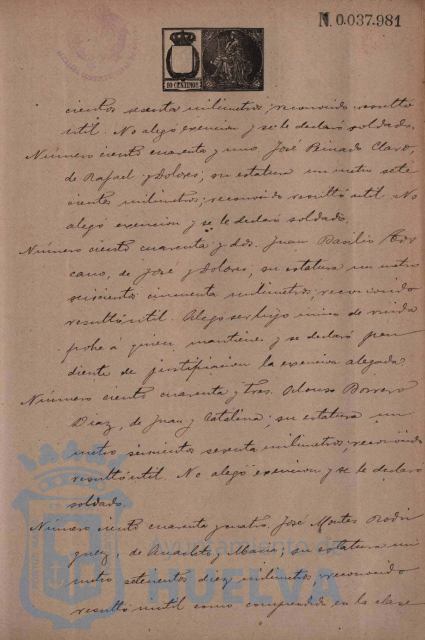 N. 0.037.981
10 CENTIMOS
cientos sesenta milimetros; reconocido resultó
útil. No alegó exencion y se le declaró soldado.
Número ciento cuarenta y uno. José Pinado Claro,
de Rafael y Dolores; su estatura un metro sete
cientos milimetros; reconocido resultó útil. No
alegó exencion y se le declaró soldado.
Número ciento cuarenta y dos. Juan Basilio
cano, de José y Dolores, su estatura un metro
seiscientos cincuenta milimetros; reconocido
resultó útil. Alegó ser hijo único de viuda
pobre á quien mantiene y se declaró pen
diente de justificacion la exencion alegada.
Número ciento cuarenta y tres. Alonso Borrero
Diaz, de Juan y Catalina; su estatura un
metro seiscientos sesenta milimetros; reconocido
resultó útil. No alegó exencion y se le declaró
soldado.
Número ciento cuarenta y cuatro. José Montes Rodri
guez, de Anacleto y Maria; su estatura un
metro setecientos diez milimetros; reconocido
resultó inutil como comprendido en la clase
Ayuntamiento de
HUELVA